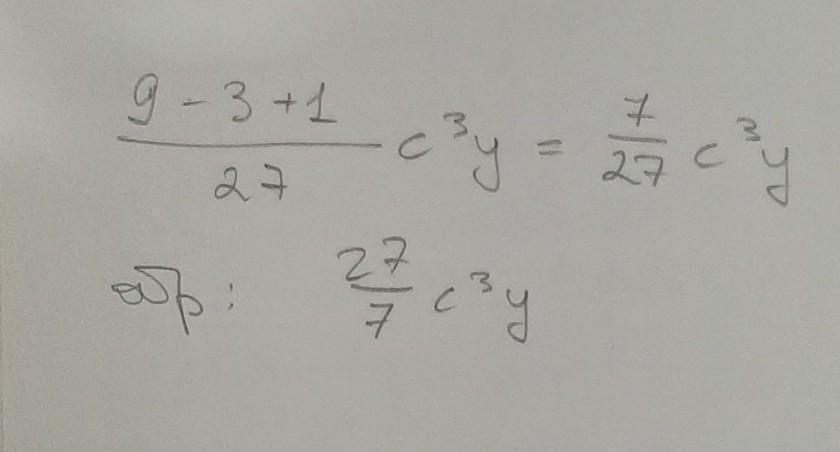 (9 - 3 + 1)/27 c³y = 7/27 c³y
обр: 27/7 c³y